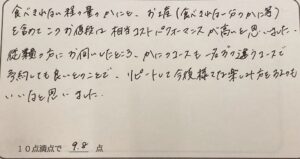 食べきれない程の量のかにと、お土産(食べきれない分のかに等)
を含めてこのお値段は相当コストパフォーマンスが高いと思いました。
従業の方にお伺いしたところ、かにのコースも一名づつ違うコースで
予約しても良いとのことで、リピートして今度様々な楽しみ方もあっても
いいなと思いました。
10点満点で 9.8 点